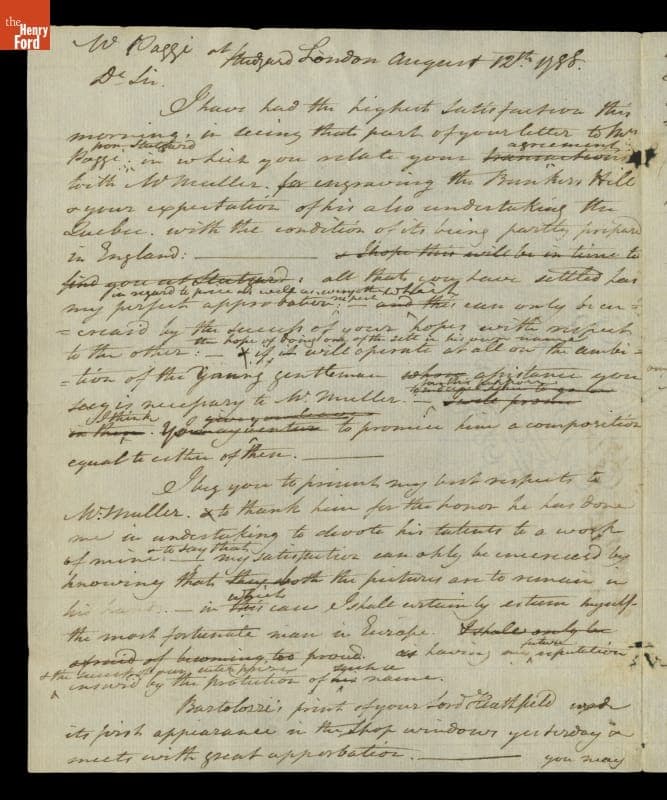 the
Henry
Ford
Mr Poggi at Studgard London August 12th 1788.
Dr Sir.
I have had the highest Satisfaction this
morning, in seeing that part of your letter to Mrs
from Stutgard agreement
Poggi in which you relate your transactions
with Mr Muller. for engraving the Bunkers Hill
& your expectation of his also undertaking the
Quebec. with the condition of its being partly prepared
in England: & I hope this will be in time to
find you at Stutgard: all that you have settled has
in regard to price as well as every other
my perfect approbation respect which
and this can only be en-
=creased by the success of your hopes with respect
the hope of being one of the sett in his own name
to the other: — if will operate at all on the ambi-
=tion of the young gentleman whose assistance you
say is necessary to Mr Muller. —
I think give your
You may venture to promise him a composition
equal to either of these.
I beg you to present my best respects to
Mr. Muller. & to thank him for the honor he has done
me in undertaking to devote his talents to a work
of mine & to say that my satisfaction can only be increased by
knowing that they both the pictures are to remain in
which
his — in this case I shall certainly esteem myself
the most fortunate man in Europe. I shall only be
future
afraid of becoming too proud. as having my reputation
& the success of our enterprize such a
insured by the protection of his name.
Bartolozzi's print of your Lord Heathfield made
its first appearance in the Shop windows yesterday &
meets with great approbation. you may